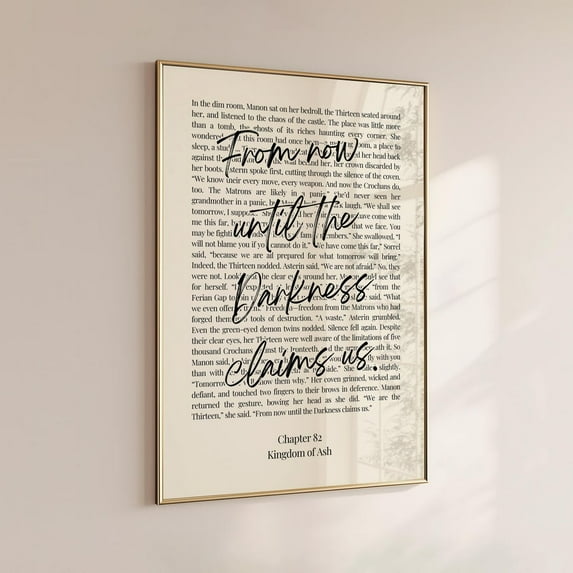 From now
until the
Darkness
claims us.
In the dim room, Manon sat on her bedroll, the Thirteen seated around
her, and listened to the chaos of the castle. The place was little more
than a tomb, the ghosts of its riches haunting every corner. She
wondered this room had once been room, a place to
sleep, a her head back
against her, her crown discarded by
her boots. spoke first, cutting through the silence of the coven.
"We know their every move, every weapon. And now the Crochans do,
too. The Matrons are likely in a panic." She'd never seen her
grandmother in a panic, laugh. "We shall see
tomorrow, I have come with
me this far, that we face. You
may be members." She swallowed, "I
will not blame you if cannot do it." have come this far," Sorrel
said, "because we are all prepared for what tomorrow will bring."
Indeed, the Thirteen nodded. Asterin said, "We are not afraid." No, they
were not. the clear around her, see that
for herself. "I "from the
Ferian Gap to said. "What
we even from the Matrons who had
forged tools of destruction. "A waste," Asterin grumbled.
Even the green-eyed demon twins nodded. Silence fell again. Despite
their clear eyes, her Thirteen were well aware of the limitations of five
thousand Crochans the Ironteeth, the it. So
Manon said, with you
than with side." She slightly.
"Tomorrow, them why." Her coven grinned, wicked and
defiant, and touched two fingers to their brows in deference. Manon
returned the gesture, bowing her head as she did. "We are the
Thirteen," she said. "From now until the Darkness claims us."
Chapter 82
Kingdom of Ash